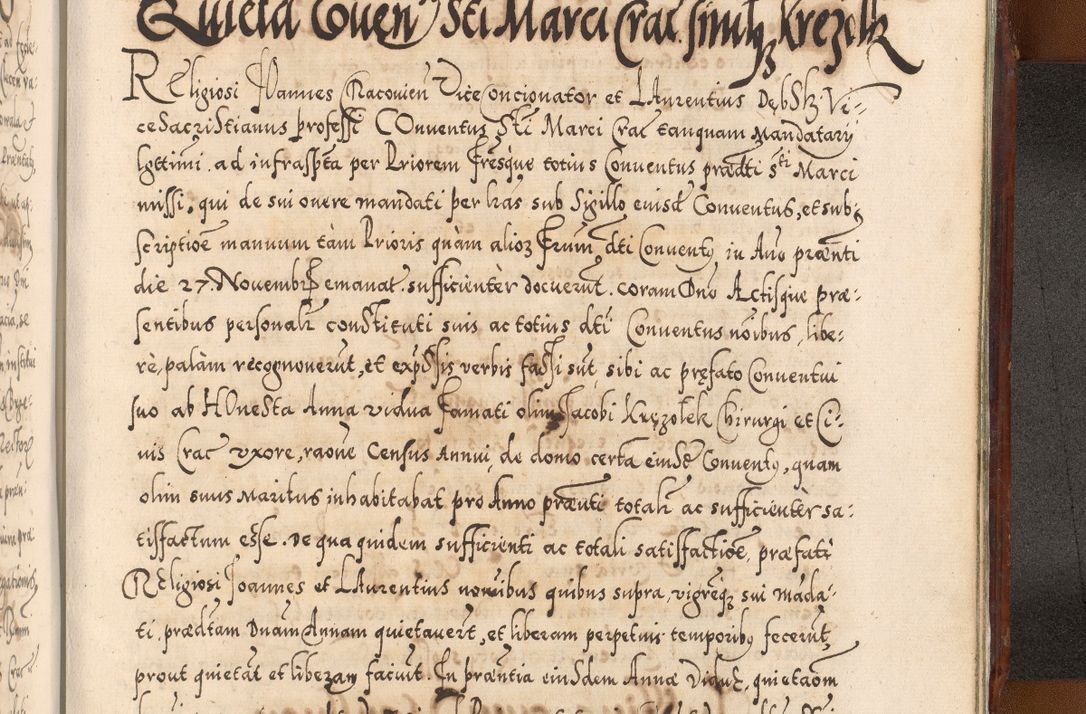 Quieta Conven Sti Marci Crac. simulqz Krezolk
Religiosi Joannes Cracovien Vice Concionator et Laurentius Dębsk Vi-
ce Sacristianus professi Conventus Sti Marci Crac tanquam Mandatary
lgttimi ad infrasspta per Priorem fresque totius Conventus praedti Sti Marci
missi, qui de sui onere mandati per lras sub Sigillo eiusd Conventus, et sub-
scriptioe manuum tàm Prioris quàm alioz fruum dti Conventq in Ano praenti
die 27. Novembr emanat. sufficientèr docuerut. coram Dno Actisque prae-
sentibus personalr constituti suis ac totius dti Conventus noibus, libe-
rè, palàm recognoverut, et expssis verbis fassi sut, sibi ac pręfato Conventui
suo ab Honesta Anna vidua famati olim Jacobi Kręzołek Chirurgi et Ci-
vis Crac uxore, raone Census Annui, de domo certa eiusd Conventq, quam
olim suus Maritus inhabitabat pro Anno praenti totalr ac sufficientèr sa-
tisfactum esse. De qua quidem sufficienti ac totali satisfactioe, praefati
Religiosi Joannes et Laurentius nomibus quibus supra, vigreqz sui mada-
ti, praedtam Duam Annam quietaverut, et liberam perpetuis temporibq fecerut,
prout quietat et liberam faciut. In praentia eiusdem Annae Viduae, quietaom